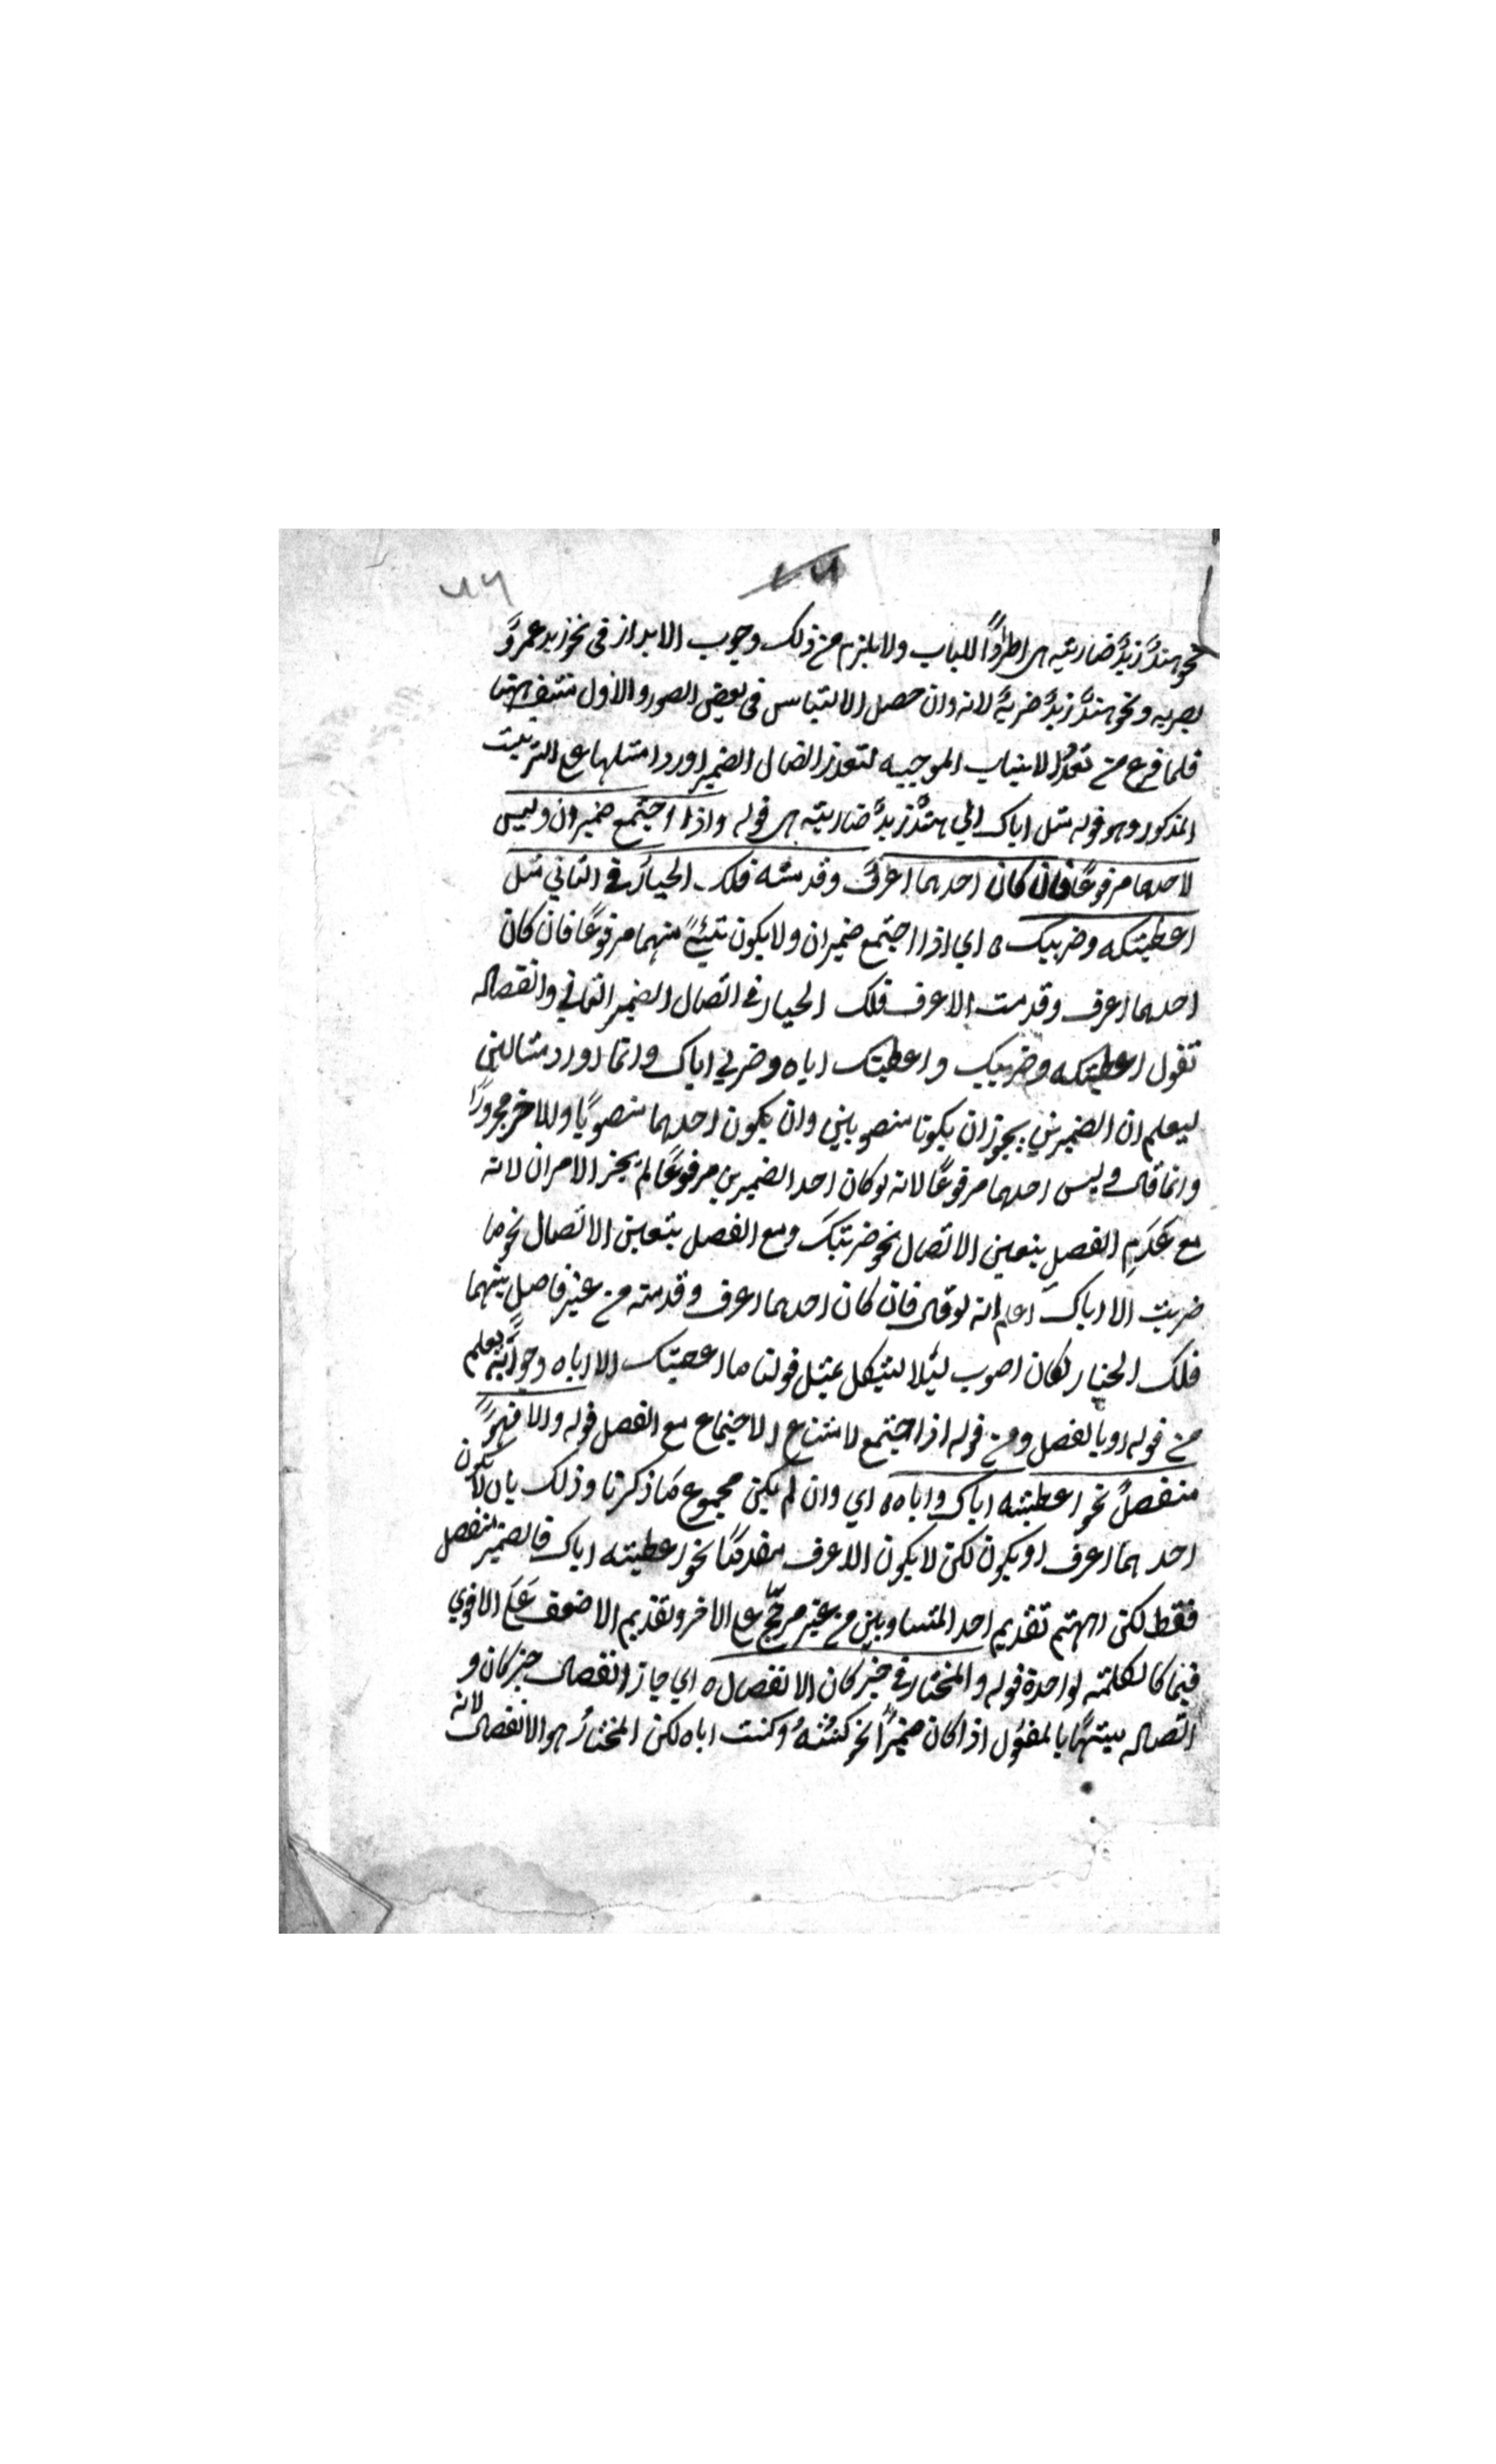 نحو هند زيد ضاربته هي اطرادًا للباب ولا يلزم من ذلك وجوب الابراز فى نحو زيد عمرو
يضربه ونحو هند زيد ضربته لانه وان حصل الالتباس فى بعض الصور والاول منتف
فلما فرغ من الاسباب الموجبه لتعذر اتصال الضمير اورد امثلتها على الترتيب
المذكور وهو قوله مثل اياك الي هند زيد ضاربته هى قوله واذا اجتمع ضميران وليس
لاحدهما مرفوعًا فان كان احدهما اعرف وقدمته فلك الخيار في الثاني مثل
اعطيتكه وضربيك ه اي اذا اجتمع ضميران ولا يكون شئ منهما مرفوعًا فان كان
احدهما اعرف وقدمت الاعرف فلك الخيار في اتصال الضمير الثاني وانفصاله
تقول اعطيتكه وضربيك واعطيتك اياه وضربي اياك وانما اورد مثالين
ليعلم ان الضميرين يجوز ان يكونا منصوبين وان يكون احدهما منصوبًا والاخر مجرورًا
وانما قال وليس احدهما مرفوعًا لانه لو كان احد الضميرين مرفوعًا لم يجز الامران لانه
مع عَدَمِ الفصل يتعين الاتصال نحو ضربتك ومع الفصل يتعين الانفصال نحو ما
ضربت الا اياك اعلم انه لو قال فان كان احدهما اعرف وقدمته من غير فاصلٍ بينهما
فلك الخيار لكان اصوب ليلا يشكل بمثل قولنا ما اعطيتك الا اياه وجوابه يعلم
من قوله او بالفصل ومن قوله اذا اجتمع لامتناع الاجتماع مع الفصل قوله والا فهو
منفصلٌ نحو اعطيته اياك واياه ه اي وان لم يكن مجموع ما ذكرنا وذلك بان لا يكون
احدهما اعرف او يكون لكن لا يكون الاعرف مقدمًا نحو اعطيته اياك فالضمير منفصل
فقط لكن تقديم احد المتساويين من غير مرجّح على الاخر وتقديم الاضعف عَلَى الاقوي
فيما كالكلمة الواحدة قوله والمختار في خبر كان الانفصال ه اي جاز انفصال خبر كان و
اتصاله بالمفعول اذا كان ضميرًا نحو كنتُهُ وكنت اياه لكن المختار هو الانفصال لانه